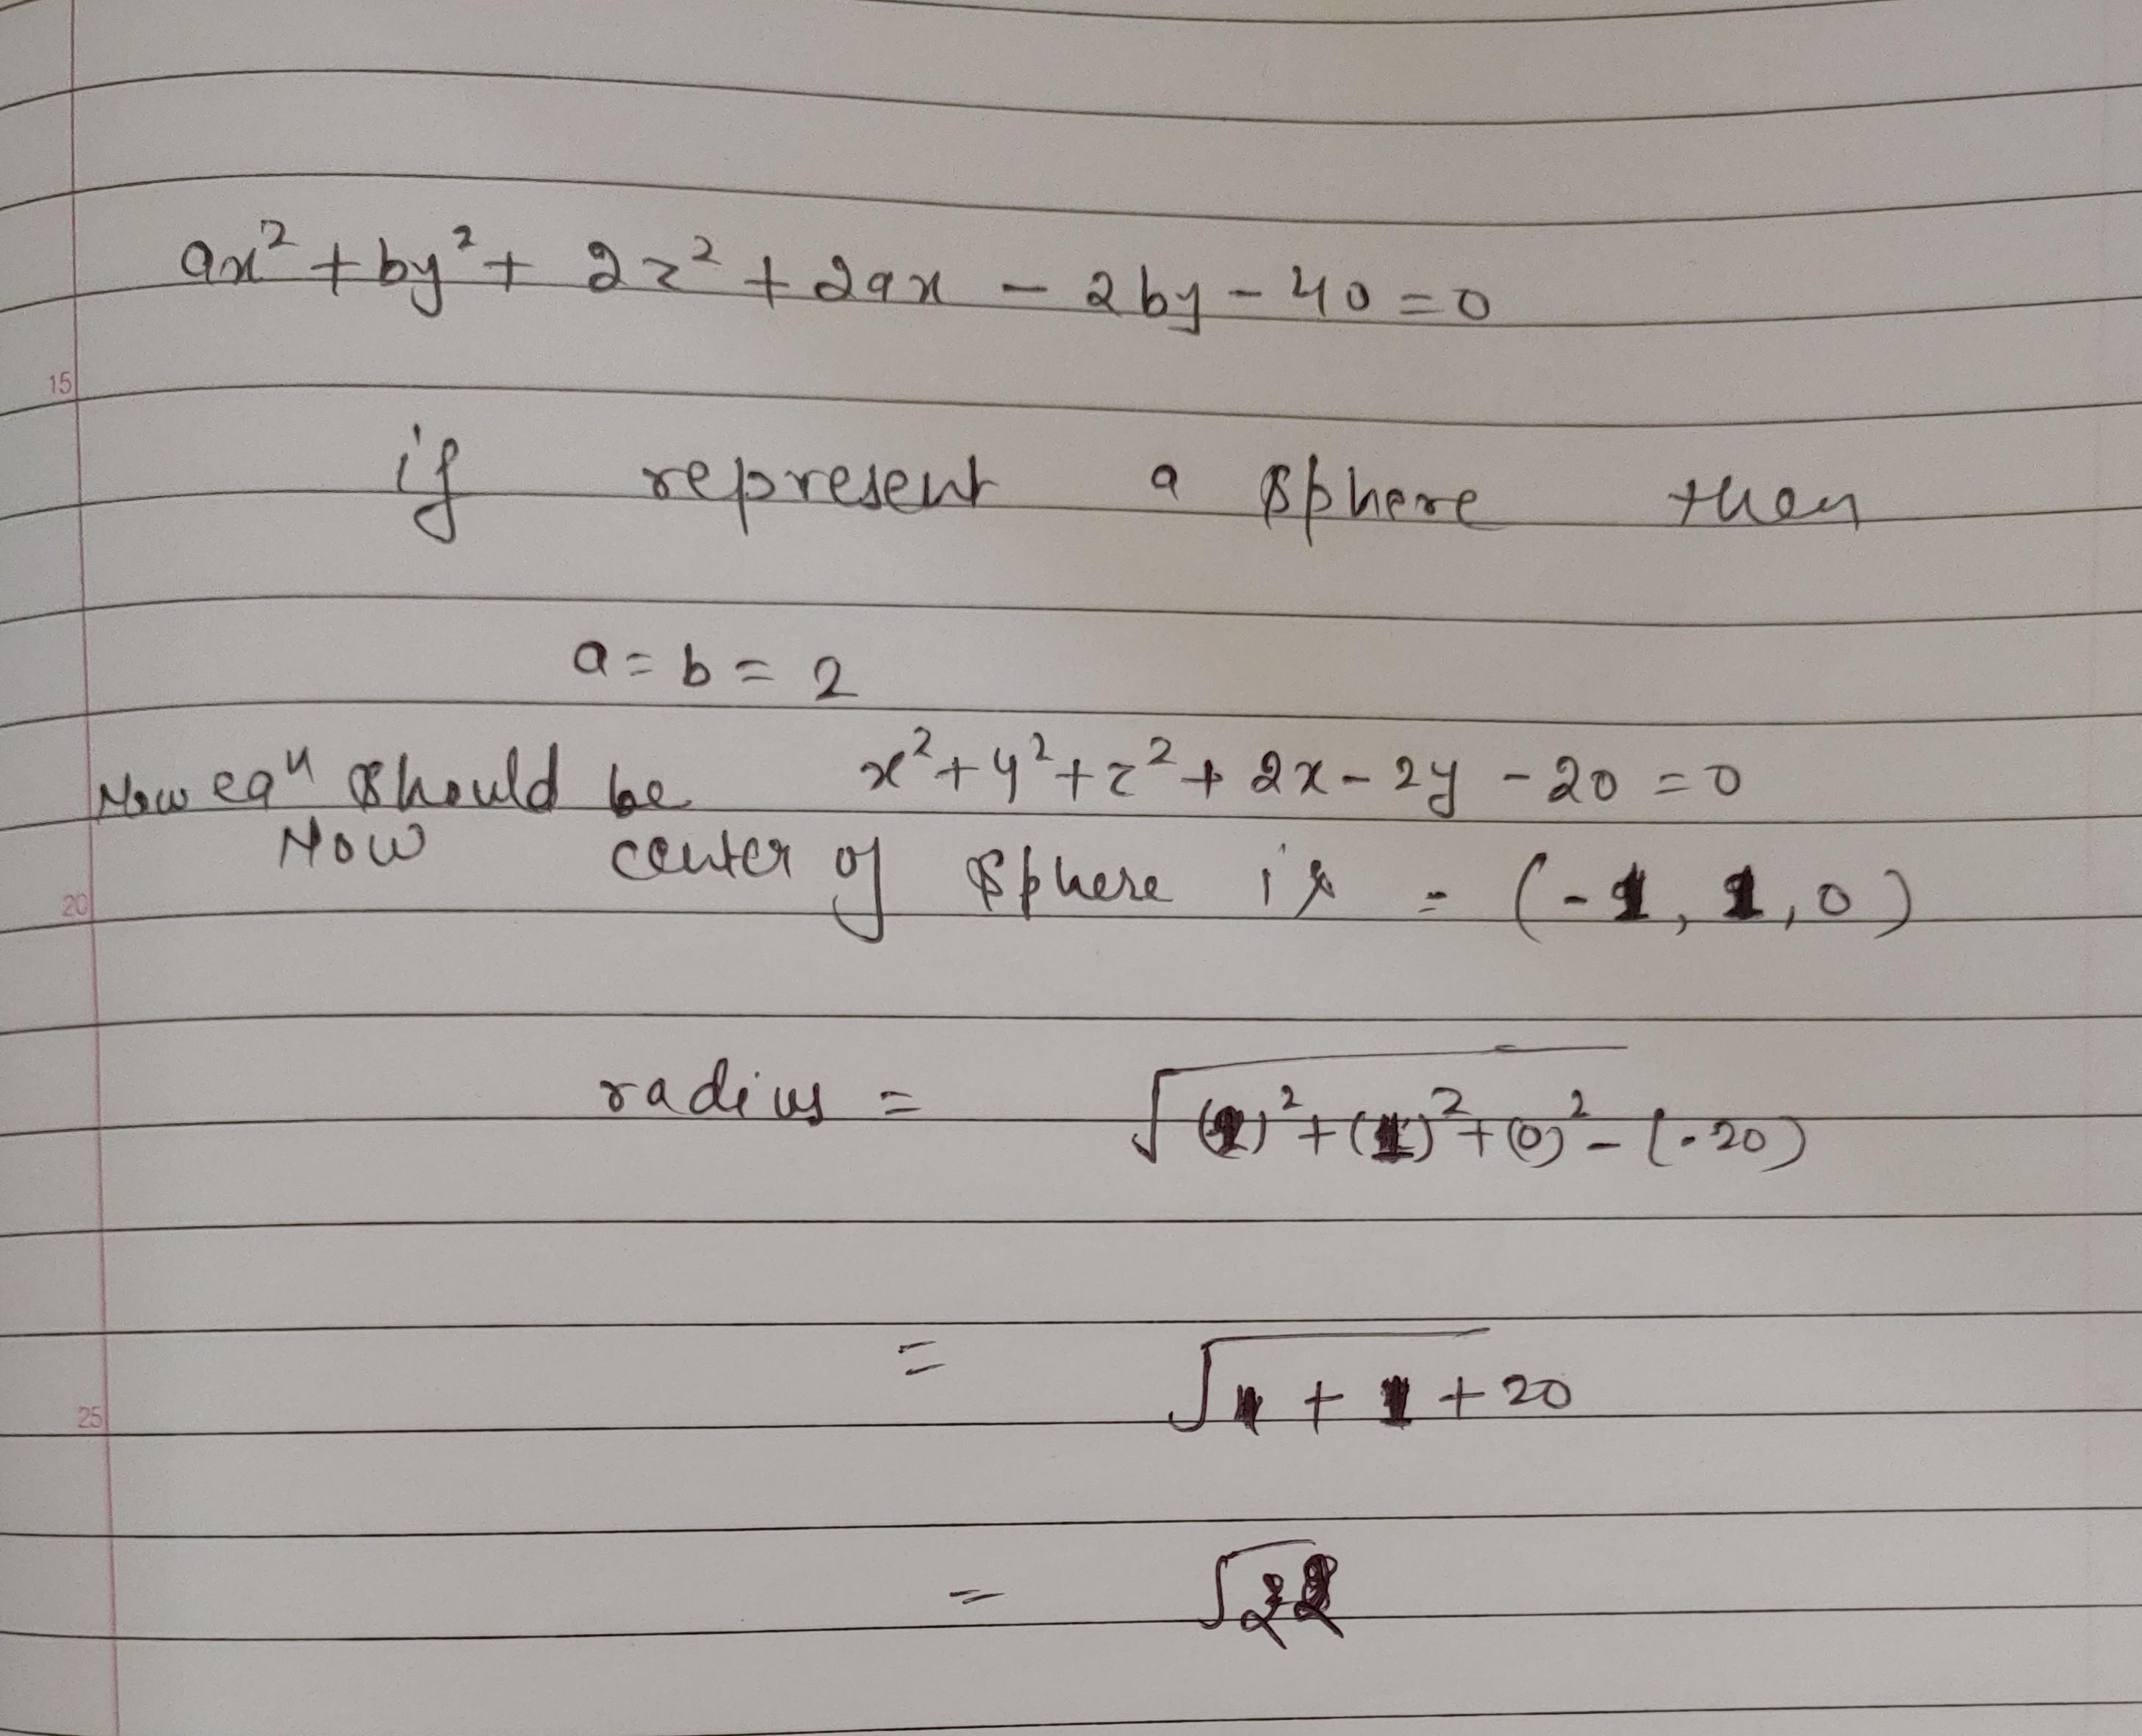 ax² + by² + 2z² + 2ax - 2by - 40 = 0
15
if represent a sphere then
a = b = 2
Now eqⁿ should be x² + y² + z² + 2x - 2y - 20 = 0
Now center of sphere is = (-1, 1, 0)
20
radius = √(1)² + (1)² + (0)² - (-20)
= √1 + 1 + 20
25
= √22